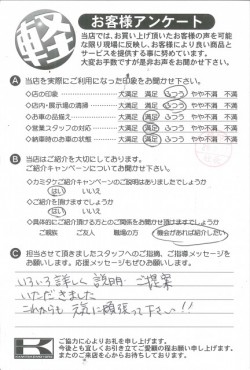 軽
お客様アンケート
当店では、お買い上げ頂いたお客様の声を可能
な限り現場に反映し、お客様により良い商品と
サービスを提供する事に努めています。
大変お手数ですが是非お声をお聞かせ下さい。
A 当店を実際にご利用になった印象をお聞かせ下さい。
◇店の印象 大満足 満足 ふつう やや不満 不満
◇店内・展示場の清掃 大満足 満足 ふつう やや不満 不満
◇お車の品揃え 大満足 満足 ふつう やや不満 不満
◇営業スタッフの対応 大満足 満足 ふつう やや不満 不満
◇納車時のお車の状態 大満足 満足 ふつう やや不満 不満
B 当店はご紹介を大切にしております。
ご紹介キャンペーンについてお聞かせ下さい。
◇カミタケご紹介キャンペーンのご説明はありましたでしょうか
はい いいえ
◇ご紹介を頂けますでしょうか
はい いいえ
◇具体的にご紹介頂ける方とのご関係をお聞かせ頂けますでしょうか
ご親族 ご友人 職場の方 機会があれば紹介したい
C 担当させて頂きましたスタッフへのご指摘、ご指導メッセージを
お願いします。応援メッセージもぜひお願します。
いろいろ詳しく説明・ご提案
いただきました
これからも元気に頑張って下さい!!
K
ご協力に心よりお礼を申し上げます。
今後とも宜しくお引き立てご愛顧の程お願い申し上げます。
またのご来店を心からお待ちしております。